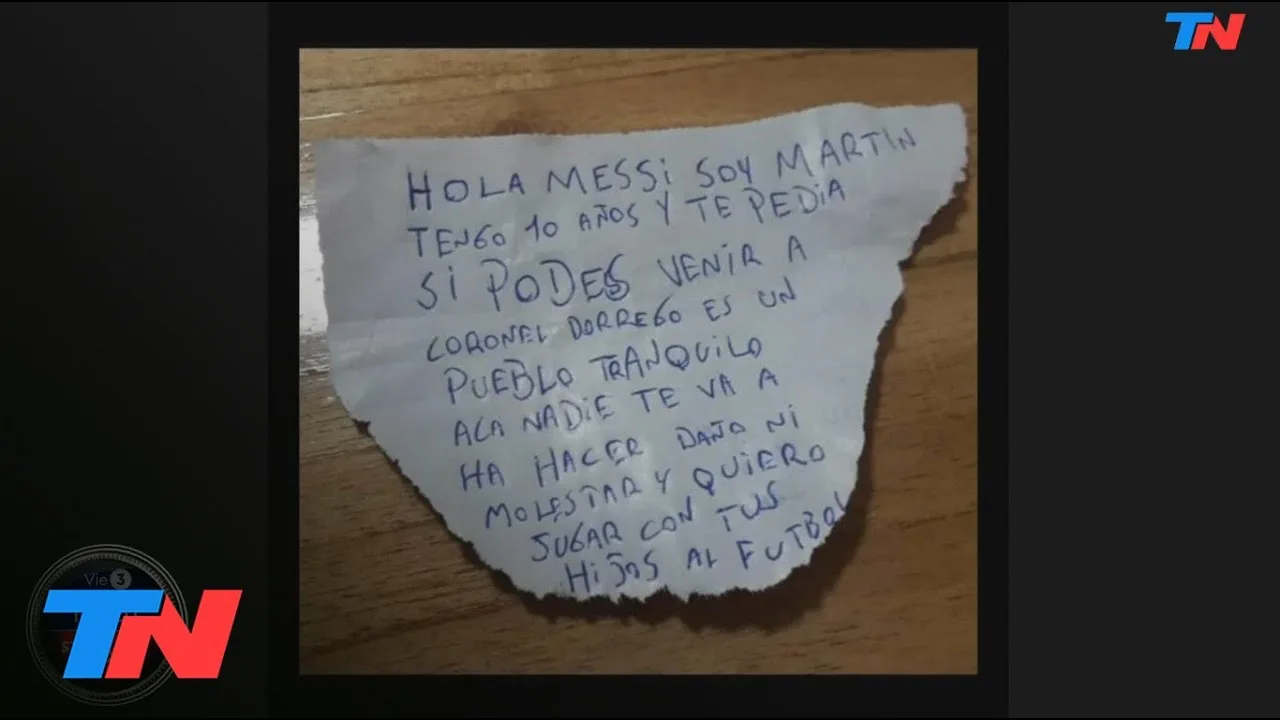 TN
HOLA MESSi SOY MARTIN
TENGO 10 AÑOS Y TE PEDiA
Si PODES VENiR A
CORONEL DORREGO ES UN
PUEBLO TRANQUiLO
ACA NADiE TE VA A
HA HACER DAÑO Ni
MOLESTAR Y QUiERO
JUGAR CON TUS
HiJOS AL FUTBOL
Vie 3
TN